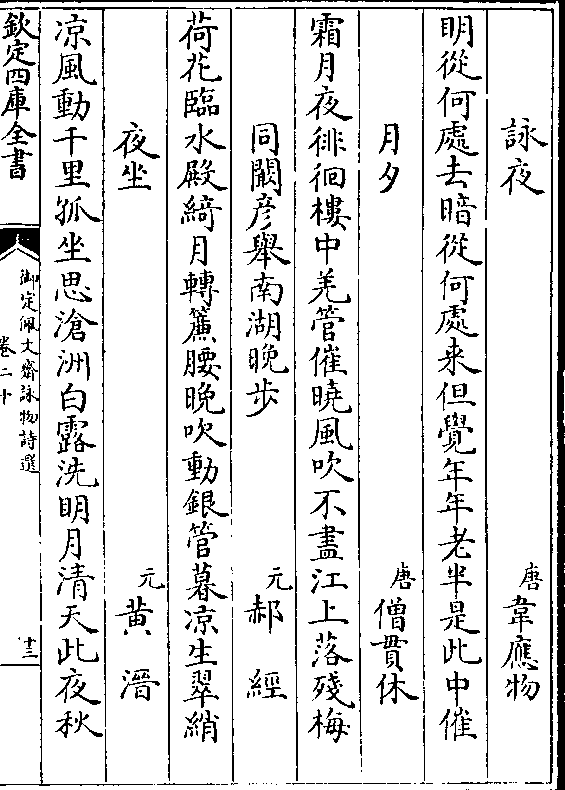 詠夜　唐韋應物
明從何處去暗從何處來但覺年年老半是此中催
月夕　唐僧貫休
霜月夜徘徊樓中羌管催曉風吹不盡江上落殘梅
同闞彦舉南湖晚步　元郝經
荷花臨水殿綺月轉簾腰晚吹動銀管暮凉生翠綃
夜坐　元黄溍
凉風動千里孤坐思滄洲白露洗明月清天此夜秋
欽定四庫全書
御定佩文齋詠物詩選
卷二十
十三